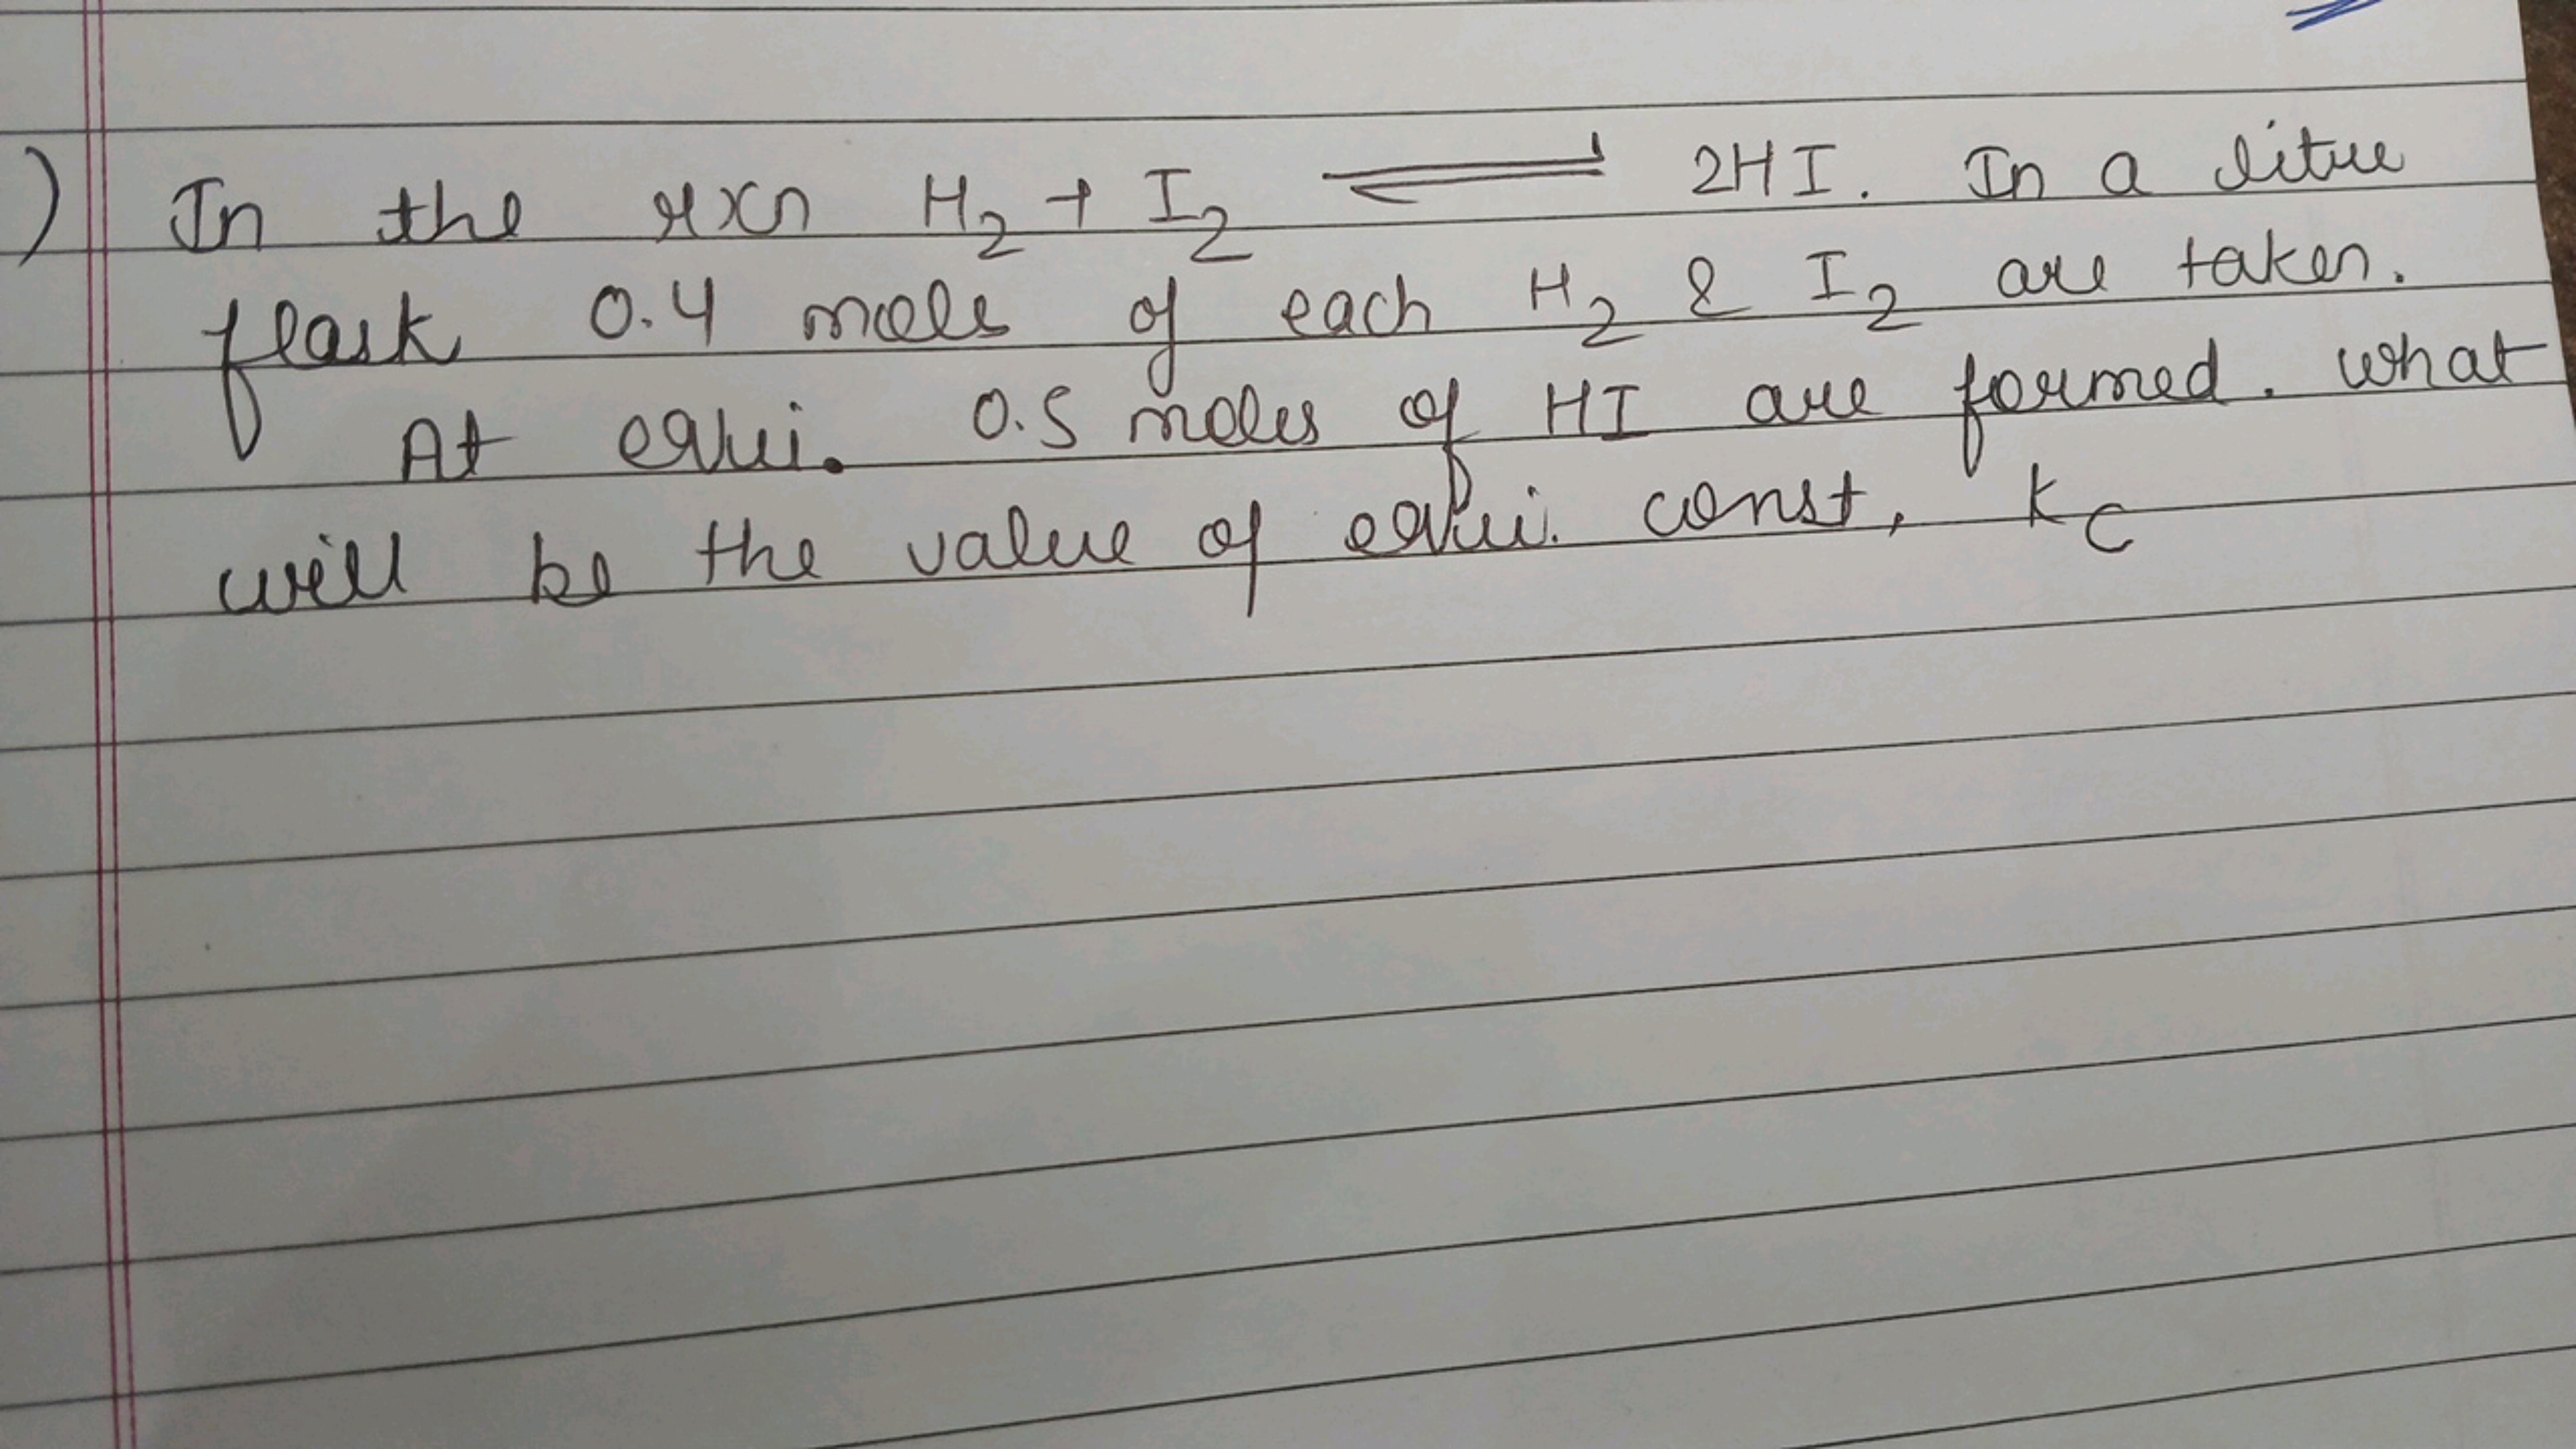 ) In the rxn H₂ + I₂ ⇌ 2HI. In a litre
flask 0.4 mols of each H₂ & I₂ are taken.
At equi. 0.5 moles of HI are formed. what
will be the value of equi. const, Kc